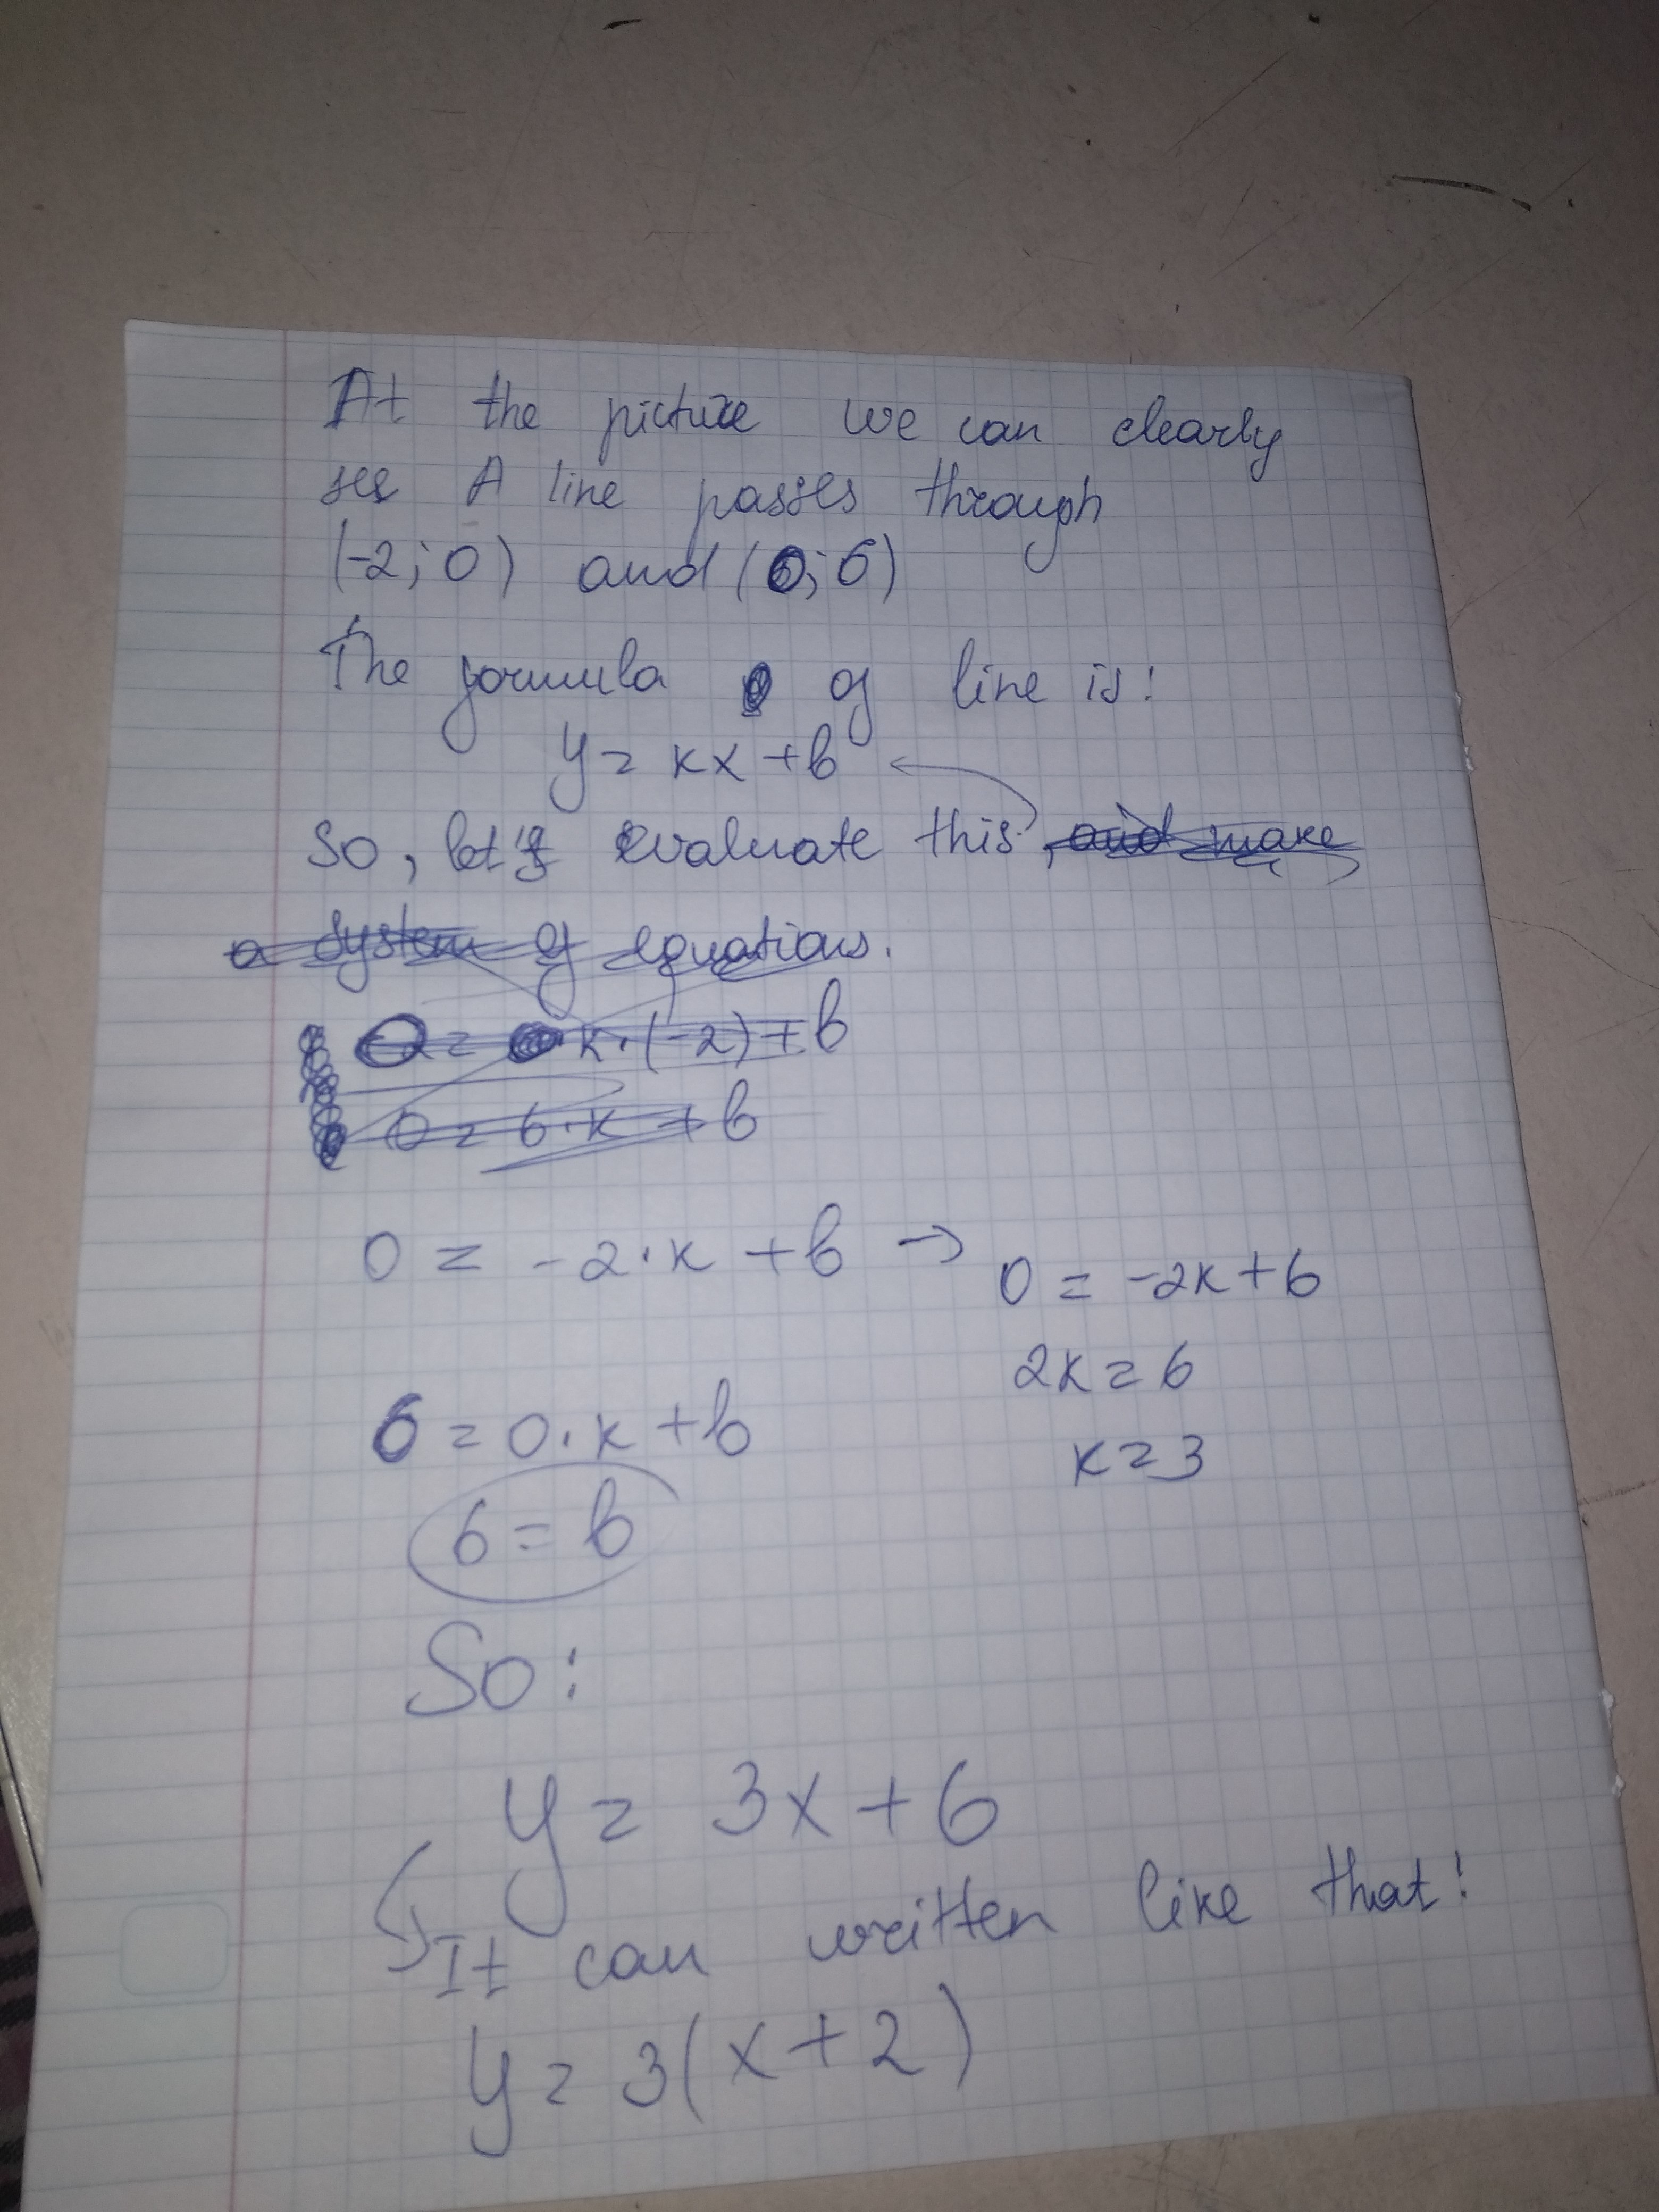 At the picture we can clearly
see A line passes through
(-2; 0) and (0; 6)
The formula of line is:
y = kx + b
So, let's evaluate this, and make
a system of equations.
0 = k·(-2) + b
0 = 6·k + b
0 = -2·k + b → 0 = -2k + 6
2k = 6
6 = 0·k + b
k = 3
6 = b
So:
y = 3x + 6
It can written like that:
y = 3(x + 2)